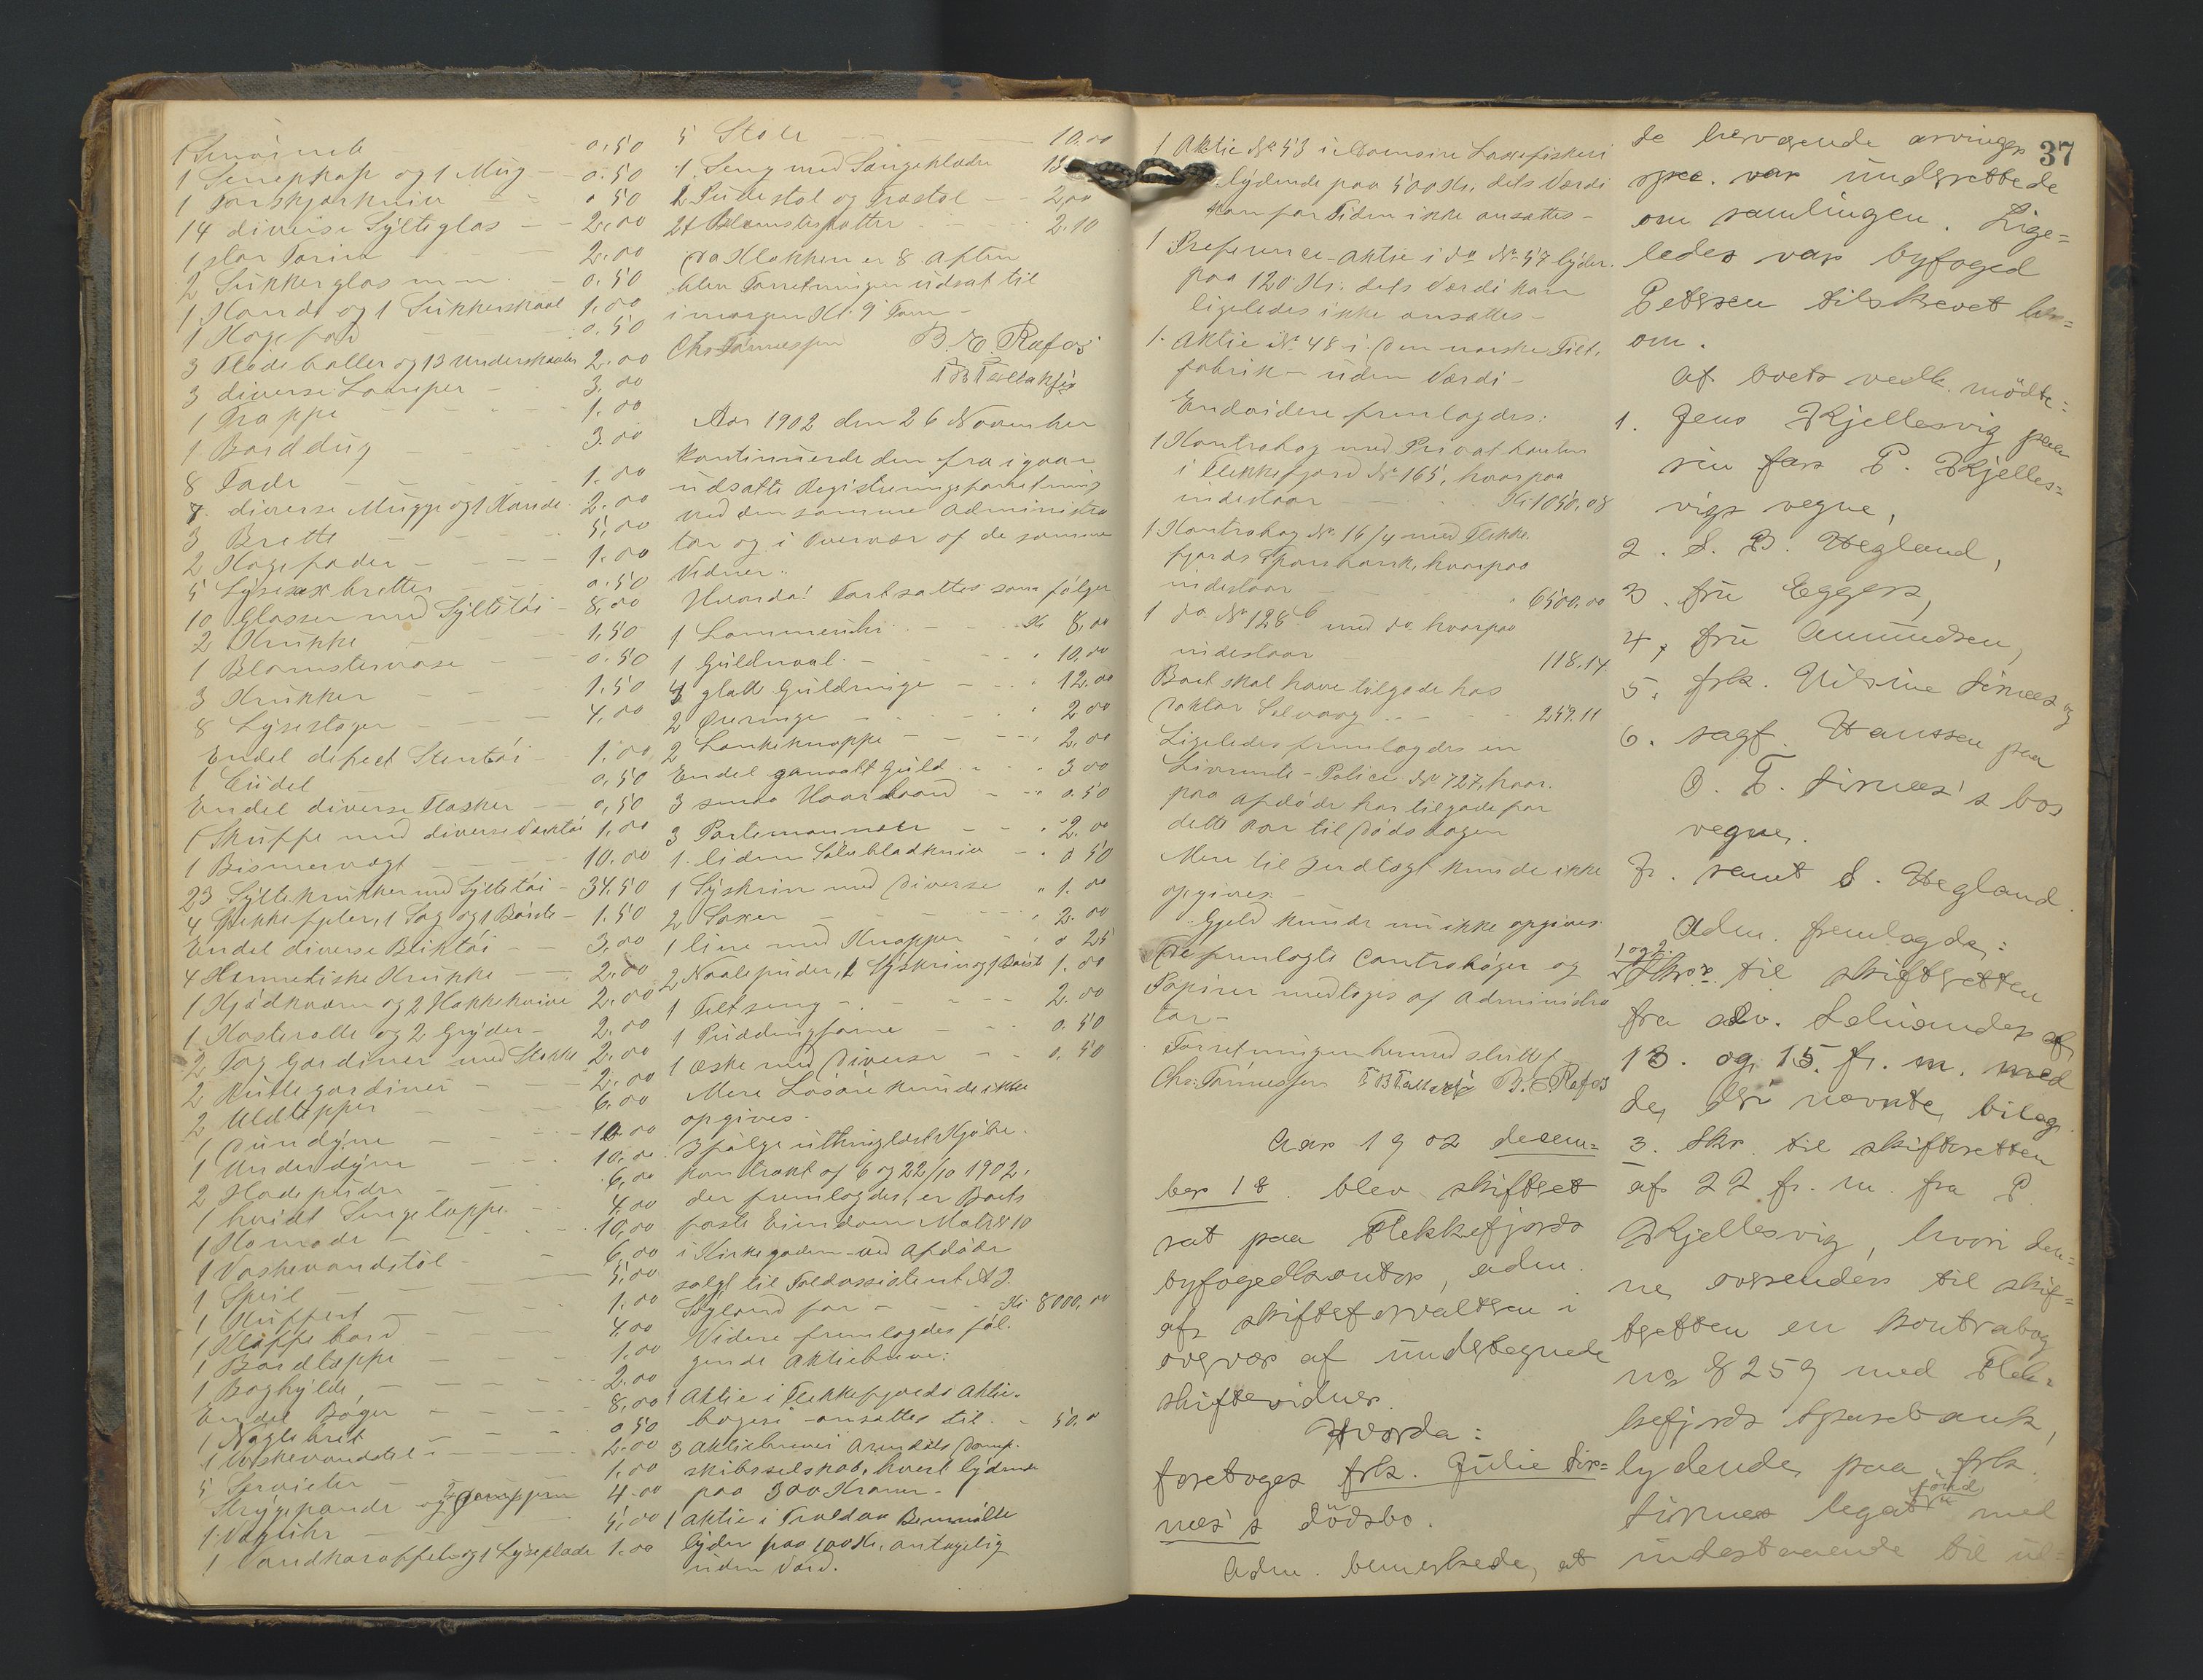 1 0.50
1 og 1 Mug 0.50
1 0.50
14 diverse Sylteglas 2.00
1 stor Terrin 2.00
2 Sukkerglas 0.50
1 Kande og 1 Sukkerskaal 1.00
1 Kagefad 0.50
3 og 13 Underskaaler 2.00
3 diverse Lamper 3.00
1 Trappe 1.00
1 Borddug 3.00
8 Fade 1.00
7 diverse Mugger og 1 Kande 2.00
3 Brette 5.00
2 Kagefader 1.00
5 Lyse bretter 0.50
10 Glasser med Syltetöi 8.00
2 Krukke 1.50
1 Blomstervase 0.50
3 Krukker 1.50
8 Lysestager 4.00
Endel defect Stentöi 1.00
1 0.50
Endel diverse Flasker 0.50
1 Skuffe med diverse 1.00
1 Bismervægt 10.00
23 Syltekrukker med Syltetöi 34.50
4 1 Sag og 1 Börste 1.50
Endel diverse Bliktöi 3.00
4 Hermetiske Krukke 2.00
1 Kjödkværn og 2 Hakkeknive 2.00
1 Kasterolle og 2 Gryder 2.00
2 Fag Gardiner med Stokke 2.00
2 Rullegardiner 2.00
2 Uldtepper 6.00
1 Dundyne 10.00
1 Underdyne 10.00
2 Hodepuder 6.00
1 hvidt Sengeteppe 4.00
1 Komode 10.00
1 Vaskevandstol 6.00
1 Speil 5.00
1 Kuffert 1.00
1 Klappebord 4.00
1 Bordteppe 1.00
1 Boghylde 2.00
Endel Böger 8.00
1 Nöglebret 0.50
1 2.00
5 Servietter 1.00
Strygepande og 4.00
1 Vægtuhr 5.00
1 Vandkaraffel og 1 Lyseplade 1.00
5 Stole 10.00
1 Seng med Sængeklæder
1 Pudestol og Træstol 2.00
21 Blomsterpotter 2.10
Da Klokken er 8 Aften
blev Forretningen udsat til
imorgen Kl. 9 Form.
Chr. Tönnessen B. E. Rafos
Aar 1902 den 26 November
kontinuerede den fra igaar
udsatte Registreringsforretning
ved den samme Administra
tor og i Overvær af de samme
Vidner.
Hvorda! Fortsattes som fölger
1 Lommeuhr Kr 8.00
1 Guldnaal 10.00
4 glatte Guldringe 12.00
2 Öreringe 2.00
2 Lænkeknappe 2.00
Endel gammalt Guld 3.00
3 smaa Haarbaand 0.50
3 Portemonnæer 2.00
1 liden Sölvbladkniv 0.50
1 Syskrin med Diverse 1.00
2 Saxer 2.00
1 med Knapper 0.25
2 Naalepuder, 1 Syskrin og 1 Börste 1.00
1 Feltseng 2.00
1 Puddingforme 0.50
1 æske med Diverse 0.50
Mere Lösöre kunde ikke
opgives.
Ifölge uthinglæst Kjöbe-
kontrakt af 6 og 22/10 1902,
der fremlagdes, er Boets
faste Eiendom Matr No 10
i Kirkegaden ved Afdöde
solgt til Toldassistent A J.
for Kr 8000.00
Videre fremlagdes föl-
gende Aktiebreve:
1 Aktie i Flekkefjords Aktie-
bageri ansattes til 50.00
3 Aktiebreve i Arendals Damp-
skibsselskab, hvert lydende
paa 300 Kroner
1 Aktie i
lyder paa 100 Kr, antagelig
uden Værd.
37
1 Aktie No 53 i Laxefiskeri
lydende paa 500 Kr, dets Værdi
kan for Tiden ikke ansættes
1 Preference-Aktie i do No 57 lyder
paa 120 Kr. dets Værdi kan
ligeledes ikke ansættes
1 Aktie No 48 i Den norske Filt-
fabrik uden Værdi
Endvidere fremlagdes:
1 Kontrabog med Privatbanken
i Flekkefjord No 165, hvorpaa
indestaar Kr 1050,08
1 Kontrabog No 16/4 med Flekke-
fjords Sparebank, hvorpaa
indestaar 6500.00
1 do No 128 med do, hvorpaa
indestaar 118.14
Boet skal have tilgode hos
Doktor Selvaag 249.11
Ligeledes fremlagdes en
Livrente-Police No 727, hvor-
paa Afdöde har tilgode for
dette Aar til Dödsdagen
Mere til Indtægt kunde ikke
opgives.
Gjeld kunde nu ikke opgives
De fremlagte Contraböger og
Papirer medtoges af Administra
tor
Forretningen hermed sluttet
Chr. Tönnessen B. E. Rafos
Aar 1902 decem=
ber 18. blev skifteret
sat paa Flekkefjords
byfogedkontor, adm.
af skifteforvalteren i
overvær af undertegnede
skiftevidner.
Hvorda:
foretoges frk. Julie Sir=
næs's dödsbo.
Adm. bemerkede, at
de herværende arvinger
var underrettede
om samlingen. Lige=
ledes var byfoged
Petersen tilskrevet her=
om.
Af boets vedk. mödte:
1. Jens Kjellesvig paa
sin far P. Kjelles=
vigs vegne,
2. S. B. Hegland,
3. fru Eggers,
4, fru Amundsen,
5. frk. Vilsine Sirnæs og
6. sagf. Hanssen paa
O. T. Sirnæs's bos
vegne.
Fr. samt S. Hegland.
Adm. fremlagde:
1 og 2. Skr. til skifteretten
fra adv. Salvander af
13. og 15. f. m. med
de deri nævnte bilag.
3. Skr. til skifteretten
af 22 f. m. fra P.
Kjellesvig, hvori den=
ne oversender til skif=
teretten en kontrabog
no 8259 med Flek=
kefjords sparebank,
lydende paa frk.
Sirnæs legatfond med
indestaaende til ud=